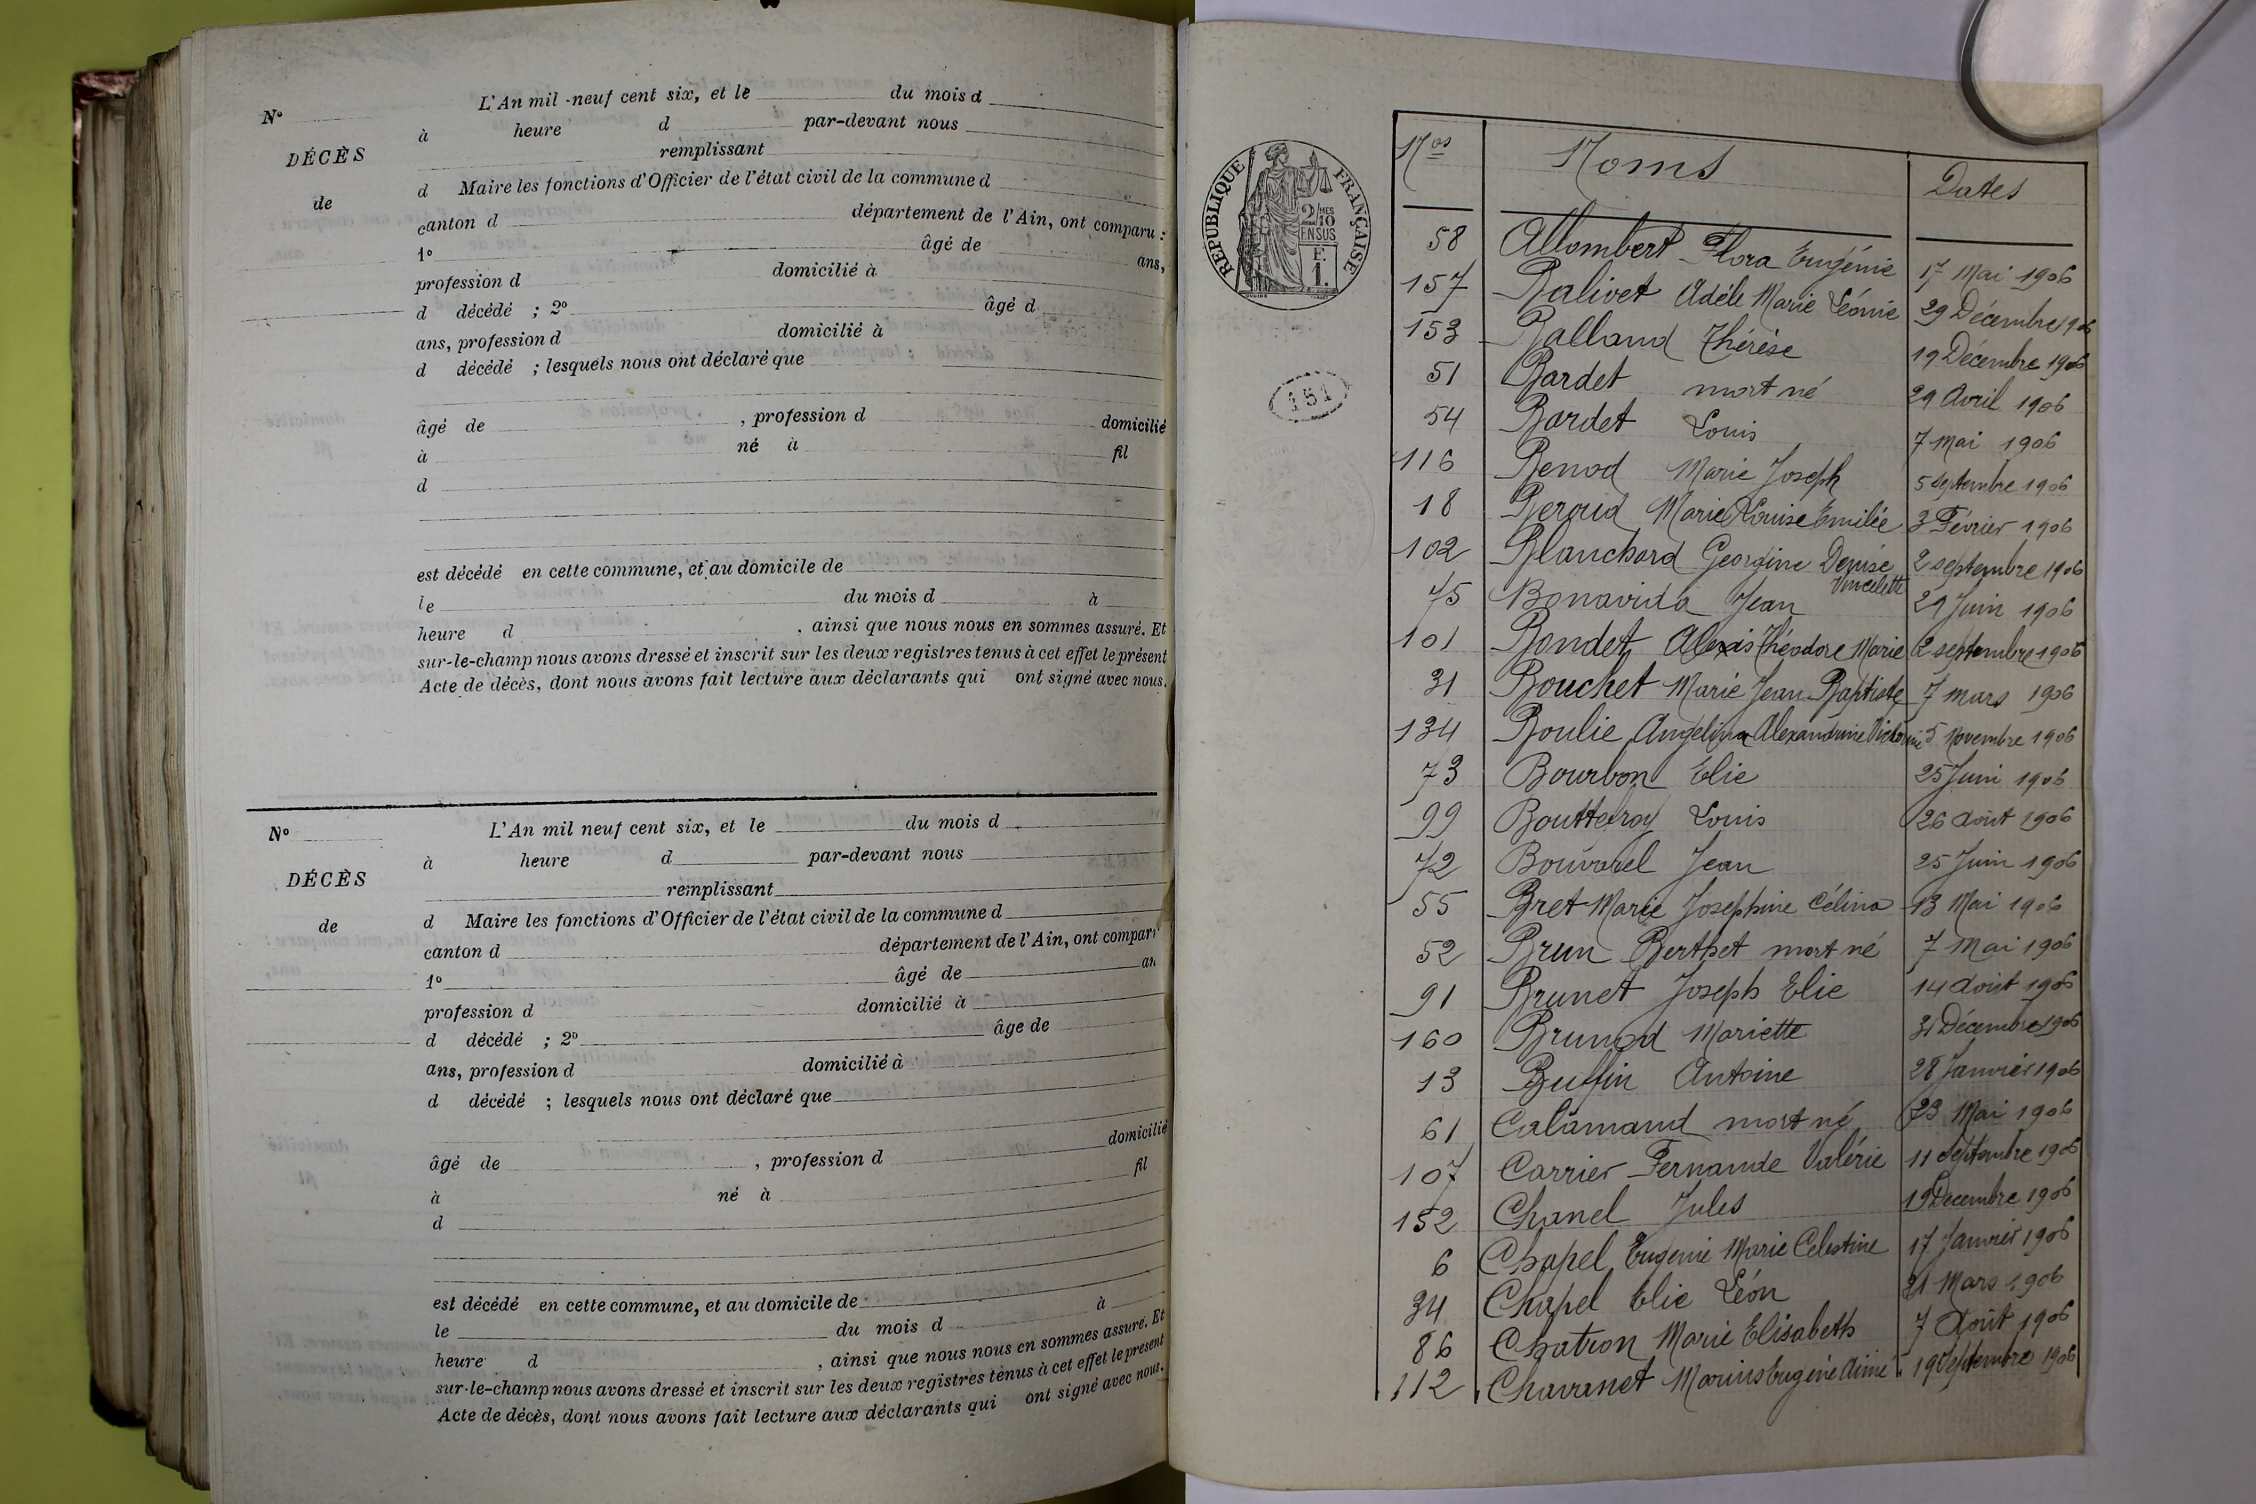 L'An mil neuf cent six, et le du mois d
N°
à heure d par-devant nous
DÉCÈS
remplissant
de
d Maire les fonctions d'Officier de l'état civil de la commune d
canton d département de l'Ain, ont comparu :
1° âgé de ans,
profession d domicilié à
d décédé ; 2° âgé d
ans, profession d domicilié à
d décédé ; lesquels nous ont déclaré que
âgé de , profession d domicilié
à né à fil
d
est décédé en cette commune, et au domicile de
le du mois d à
heure d , ainsi que nous nous en sommes assuré. Et
sur-le-champ nous avons dressé et inscrit sur les deux registres tenus à cet effet le présent
Acte de décès, dont nous avons fait lecture aux déclarants qui ont signé avec nous.
N° L'An mil neuf cent six, et le du mois d
à heure d par-devant nous
DÉCÈS
remplissant
de
d Maire les fonctions d'Officier de l'état civil de la commune d
canton d département de l'Ain, ont compar
1° âgé de an
profession d domicilié à
d décédé ; 2° âge de
ans, profession d domicilié à
d décédé ; lesquels nous ont déclaré que
âgé de , profession d domicilié
à né à fil
d
est décédé en cette commune, et au domicile de
le du mois d à
heure d , ainsi que nous nous en sommes assuré. Et
sur-le-champ nous avons dressé et inscrit sur les deux registres tenus à cet effet le présent
Acte de décès, dont nous avons fait lecture aux déclarants qui ont signé avec nous.
RÉPUBLIQUE FRANÇAISE
2/10 MES
EN SUS
F.
1.
151
Nos Noms Dates
58 Allombert Flora Eugénie 17 Mai 1906
157 Balivet Adèle Marie Léonie 29 Décembre 1906
153 Balland Thérèse 19 Décembre 1906
51 Bardet mort né 29 Avril 1906
54 Bardet Louis 7 mai 1906
116 Benod Marie Joseph 5 Septembre 1906
18 Beroud Marie Louise Emilie 3 Février 1906
102 Blanchard Georgine Denise Vincelette 2 septembre 1906
75 Bonavida Jean 29 Juin 1906
101 Bondet Alexis Théodore Marie 2 septembre 1906
31 Bouchet Marie Jean Baptiste 7 mars 1906
134 Boulie Angelina Alexandrine Victorine 5 Novembre 1906
73 Bourbon Elie 25 Juin 1906
99 Boutteroy Louis 26 Août 1906
72 Bouvarel Jean 25 Juin 1906
55 Bret Marie Josephine Célina 13 Mai 1906
52 Brun Berthet mort né 7 Mai 1906
91 Brunet Joseph Elie 14 Août 1906
160 Brunod Mariette 31 Décembre 1906
13 Buffin Antoine 28 Janvier 1906
61 Calamand mort né 23 Mai 1906
107 Carrier Fernande Valérie 11 Septembre 1906
152 Chanel Jules 19 Decembre 1906
6 Chapel Eugenie Marie Celestine 17 Janvier 1906
34 Chapel Elie Léon 21 Mars 1906
86 Chatron Marie Elisabeth 7 Août 1906
112 Chavanet Marius Eugène Aimé 19 Septembre 1906